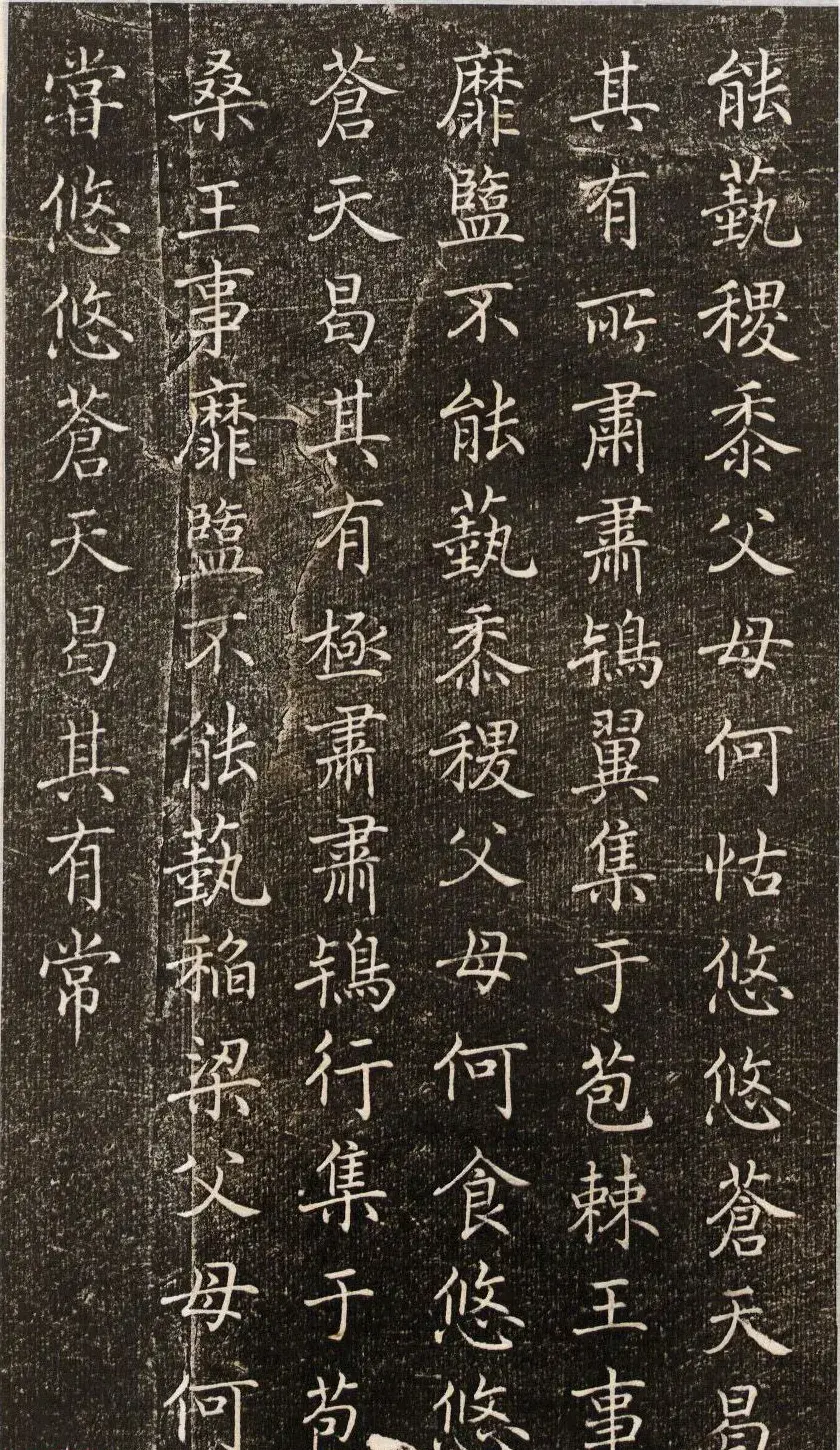 能蓺稷黍父母何怙悠悠蒼天曷
其有所肅肅鴇翼集于苞棘王事
靡盬不能蓺黍稷父母何食悠悠
蒼天曷其有極肅肅鴇行集于苞
桑王事靡盬不能蓺稻粱父母何
嘗悠悠蒼天曷其有常